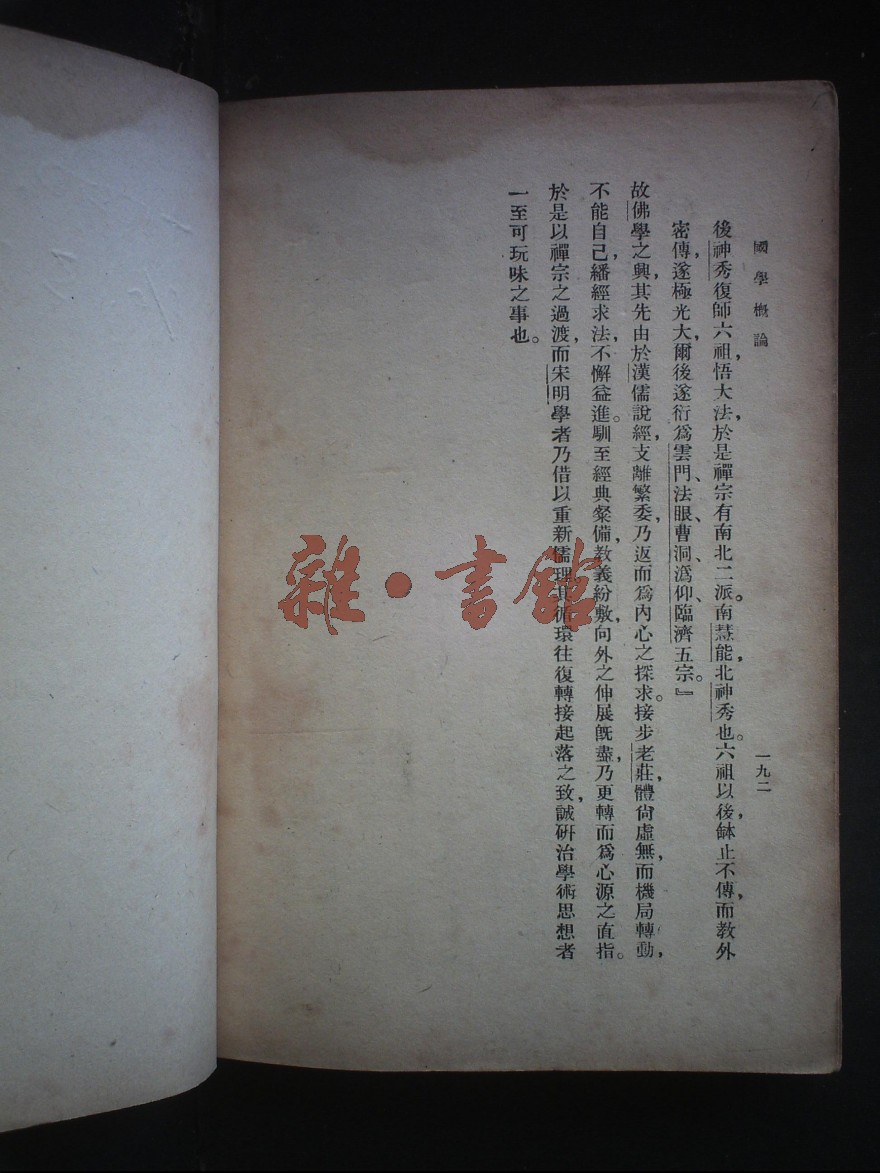 國學概論
一九二
後神秀復師六祖，悟大法，於是禪宗有南北二派。南慧能，北神秀也。六祖以後，鉢止不傳，而教外
密傳，遂極光大，爾後遂衍爲雲門、法眼、曹洞、溈仰、臨濟五宗。』
故佛學之興，其先由於漢儒說經，支離繁委，乃返而爲內心之探求。接步老莊，體尙虛無，而機局轉動，
不能自已，繙經求法，不懈益進。馴至經典粲備，教義紛敷，向外之伸展旣盡，乃更轉而爲心源之直指。
於是以禪宗之過渡，而宋明學者乃借以重新儒理。其循環往復，轉接起落之致，誠硏治學術思想者
一至可玩味之事也。
雜·書館